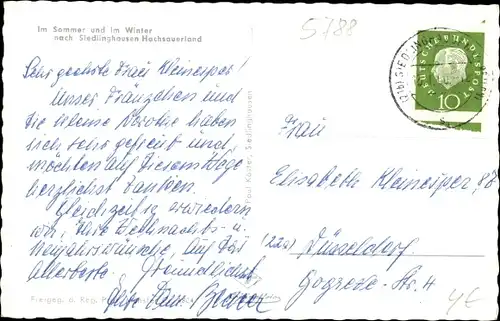 Im Sommer und im Winter
nach Siedlinghausen Hochsauerland
5788
Sehr geehrte Frau Kleinesper!
Unser Fränzchen und
die kleine Dorothe haben
sich sehr gefreut und
möchten auf diesem Wege
herzlichst danken.
Gleichzeitig erwiedern
wir, Ihre Weihnachts- u.
Neujahrswünsche, auf das
Allerbeste. Freundlichst
Freigeg. d. Reg.
Paul Köster, Siedlinghausen
DEUTSCHE BUNDESPOST
10
(21b) SIEDLINGHAUSEN
Frau
Elisabeth Kleinesper
(22a) Düsseldorf
Str. 4
4€